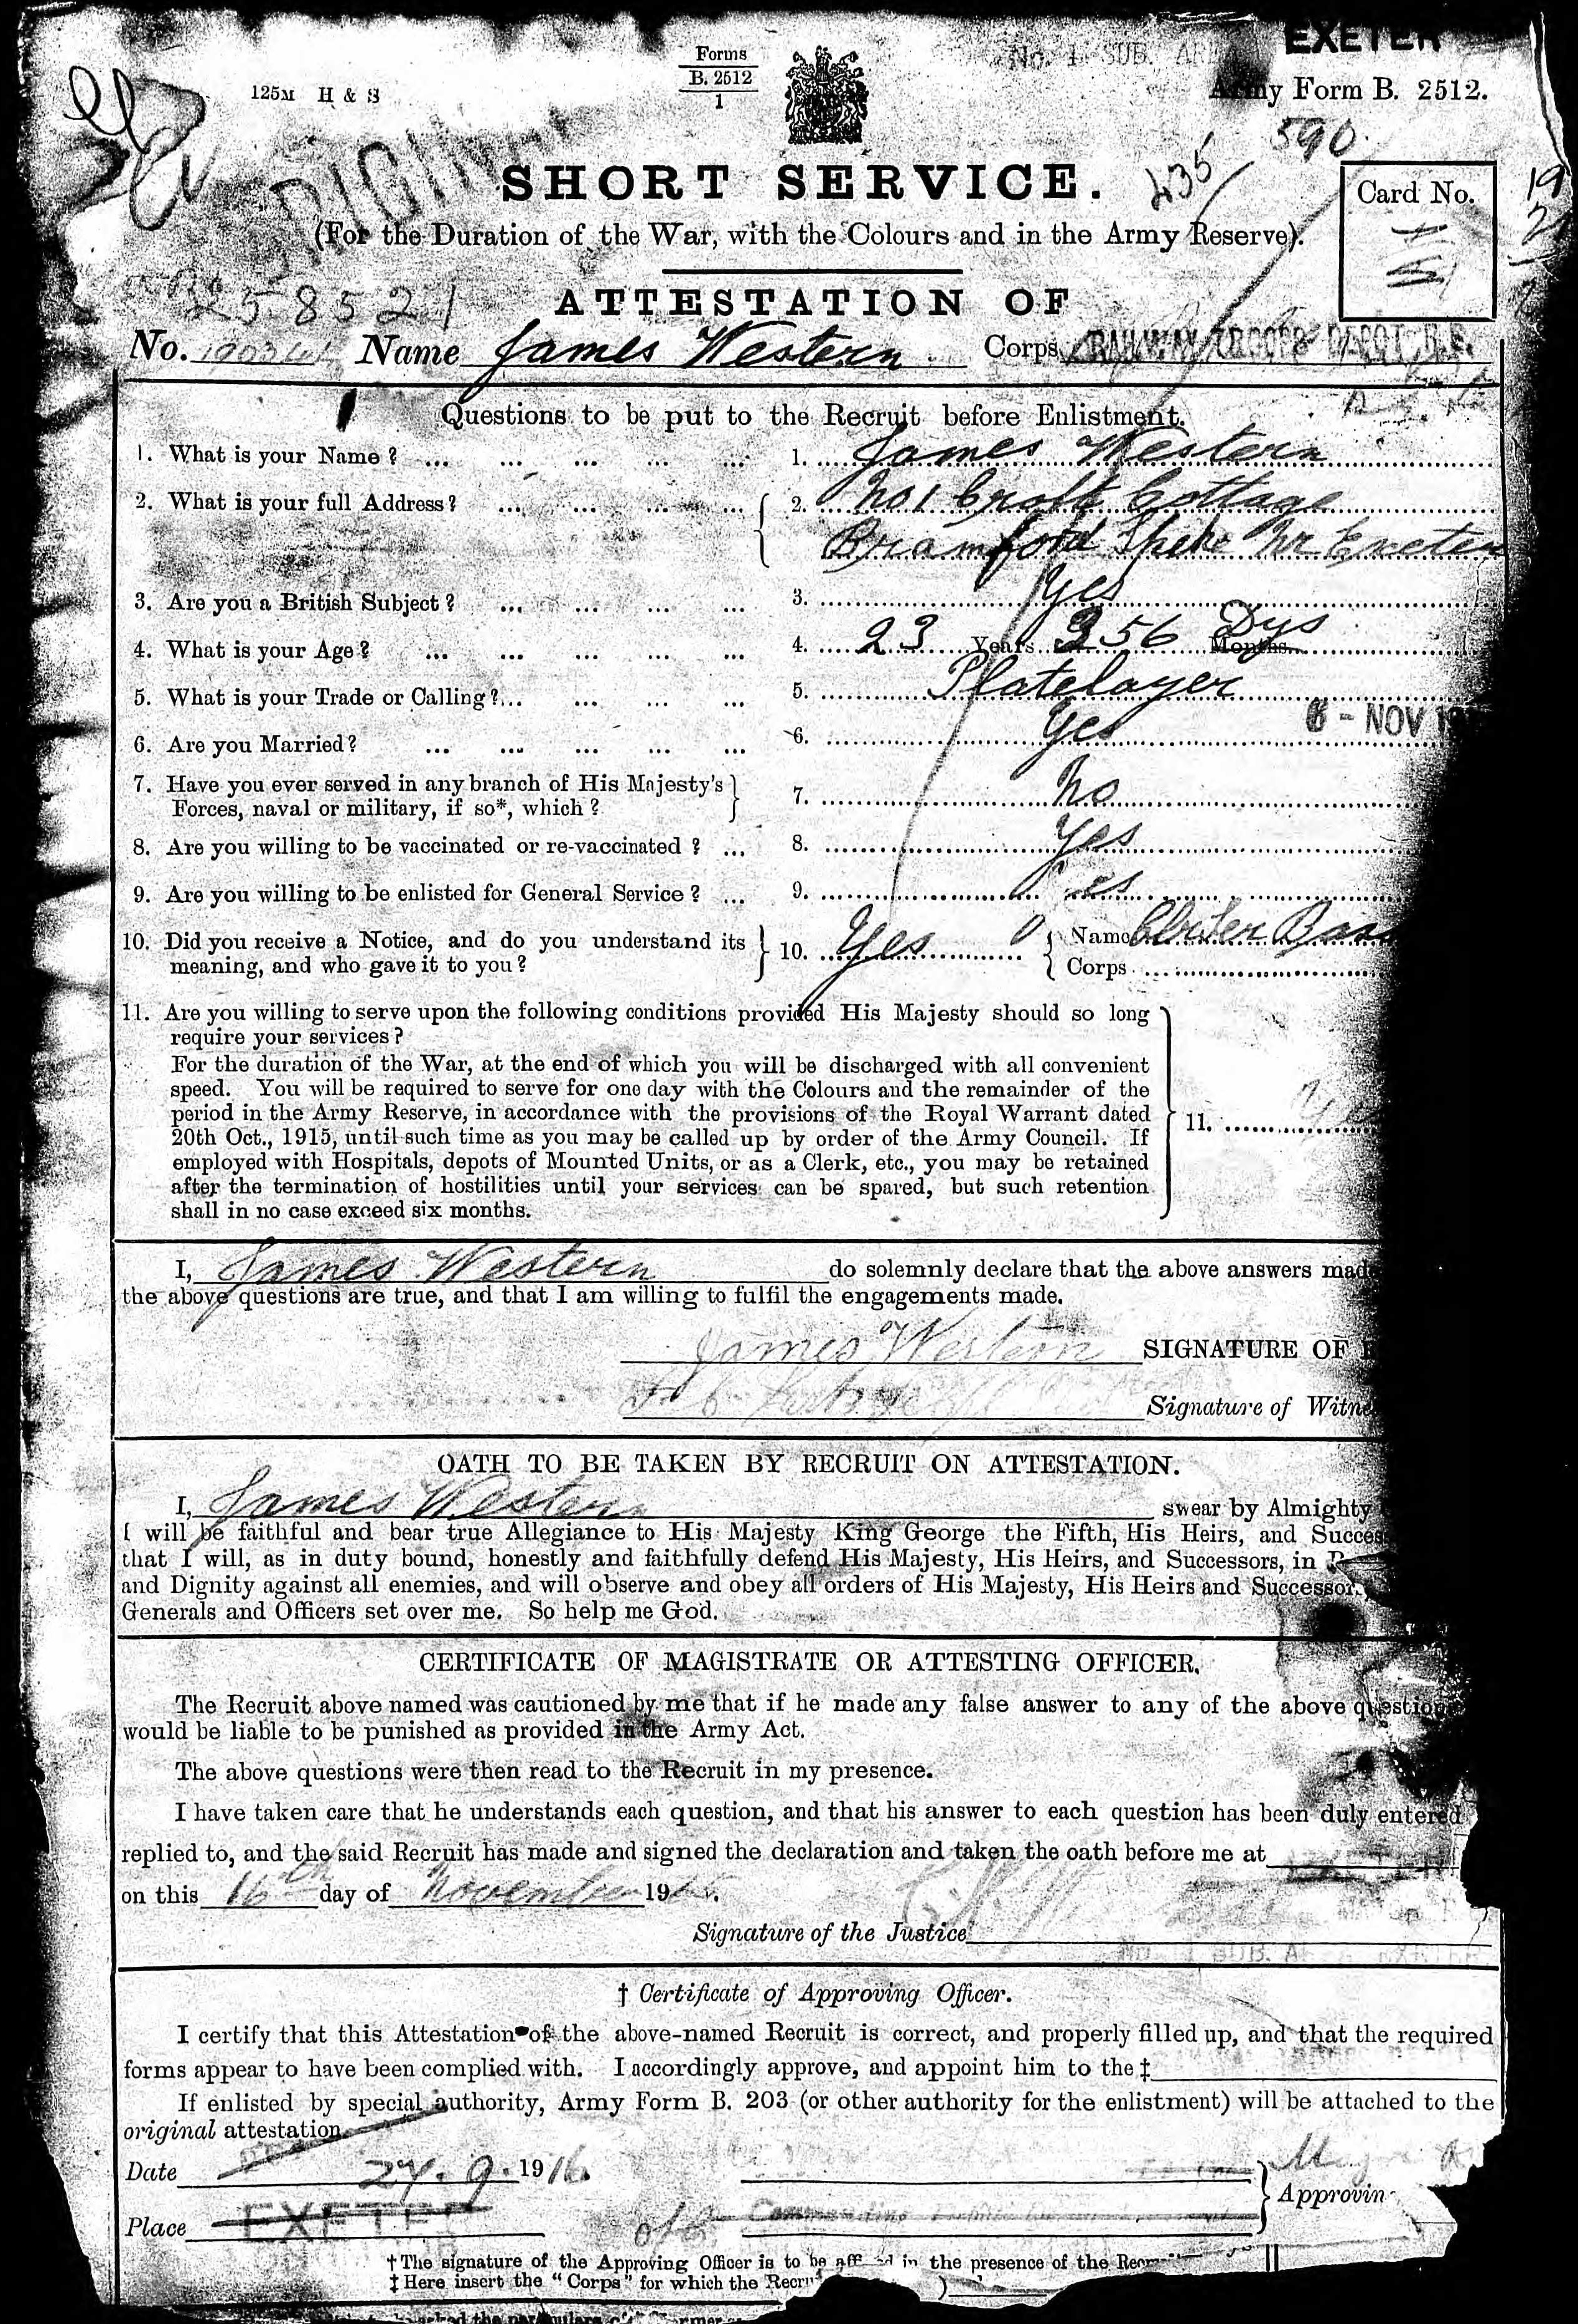 EXETER
No. 1 SUB. AR
Forms
B. 2512
1
125M H & S
Army Form B. 2512.
590
435
ORIGINAL
SHORT SERVICE.
Card No.
(For the Duration of the War, with the Colours and in the Army Reserve).
258521
ATTESTATION OF
No. Name James Western Corps RAILWAY TROOPS DEPOT R.E.
Questions to be put to the Recruit before Enlistment.
1. What is your Name? ... ... ... ... ... 1. James Western
2. What is your full Address? ... ... ... ... 2. No 1 Croft Cottage
Bramford Speke Nr Exeter
3. Are you a British Subject? ... ... ... ... 3. Yes
4. What is your Age? ... ... ... ... ... 4. 23 Years 256 Dys Months
5. What is your Trade or Calling?... ... ... ... 5. Platelayer
6 - NOV 19
6. Are you Married? ... ... ... ... ... 6. Yes
7. Have you ever served in any branch of His Majesty's
Forces, naval or military, if so*, which? 7. No
8. Are you willing to be vaccinated or re-vaccinated? ... 8. Yes
9. Are you willing to be enlisted for General Service? ... 9. Yes
10. Did you receive a Notice, and do you understand its
meaning, and who gave it to you? 10. Yes Name
Corps
11. Are you willing to serve upon the following conditions provided His Majesty should so long
require your services?
For the duration of the War, at the end of which you will be discharged with all convenient
speed. You will be required to serve for one day with the Colours and the remainder of the
period in the Army Reserve, in accordance with the provisions of the Royal Warrant dated
20th Oct., 1915, until such time as you may be called up by order of the Army Council. If
employed with Hospitals, depots of Mounted Units, or as a Clerk, etc., you may be retained
after the termination of hostilities until your services can be spared, but such retention
shall in no case exceed six months.
11. Yes
I, James Western do solemnly declare that the above answers made
the above questions are true, and that I am willing to fulfil the engagements made.
James Western SIGNATURE OF
Signature of Witne
OATH TO BE TAKEN BY RECRUIT ON ATTESTATION.
I, James Western swear by Almighty
I will be faithful and bear true Allegiance to His Majesty King George the Fifth, His Heirs, and Succes
that I will, as in duty bound, honestly and faithfully defend His Majesty, His Heirs, and Successors, in
and Dignity against all enemies, and will observe and obey all orders of His Majesty, His Heirs and Successor
Generals and Officers set over me. So help me God.
CERTIFICATE OF MAGISTRATE OR ATTESTING OFFICER.
The Recruit above named was cautioned by me that if he made any false answer to any of the above question
would be liable to be punished as provided in the Army Act.
The above questions were then read to the Recruit in my presence.
I have taken care that he understands each question, and that his answer to each question has been duly entered
replied to, and the said Recruit has made and signed the declaration and taken the oath before me at
on this 16th day of November 19
Signature of the Justice
† Certificate of Approving Officer.
I certify that this Attestation of the above-named Recruit is correct, and properly filled up, and that the required
forms appear to have been complied with. I accordingly approve, and appoint him to the‡
If enlisted by special authority, Army Form B. 203 (or other authority for the enlistment) will be attached to the
original attestation
Date 27. 9. 1916.
Major
Approvin
Place EXETER
† The signature of the Approving Officer is to be aff in the presence of the Recr
‡ Here insert the "Corps" for which the Recru